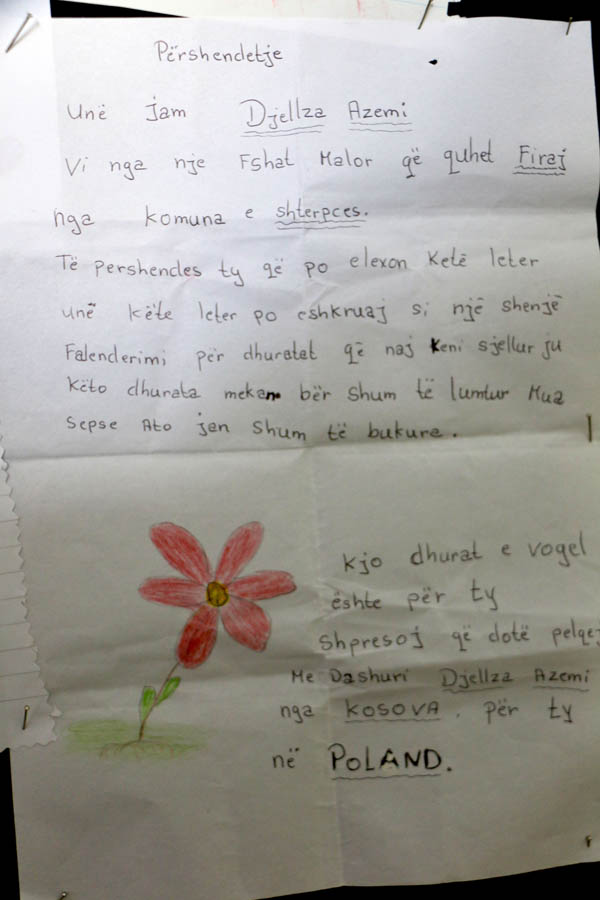 Përshendetje
Unë jam Djellza Azemi
Vi nga nje Fshat Malor që quhet Firaj
nga komuna e shterpces.
Të pershendes ty që po elexon Ketë leter
unë këte leter po eshkruaj si një shenjë
Falenderimi për dhuratat që naj keni sjellur ju
Këto dhurata mekan bër Shum të lumtur Mua
Sepse Ato jan Shum të bukura.
Kjo dhurat e vogel
ështe për ty
Shpresoj që dotë pelqej
Me Dashuri Djellza Azemi
nga KOSOVA. për ty
në POLAND.